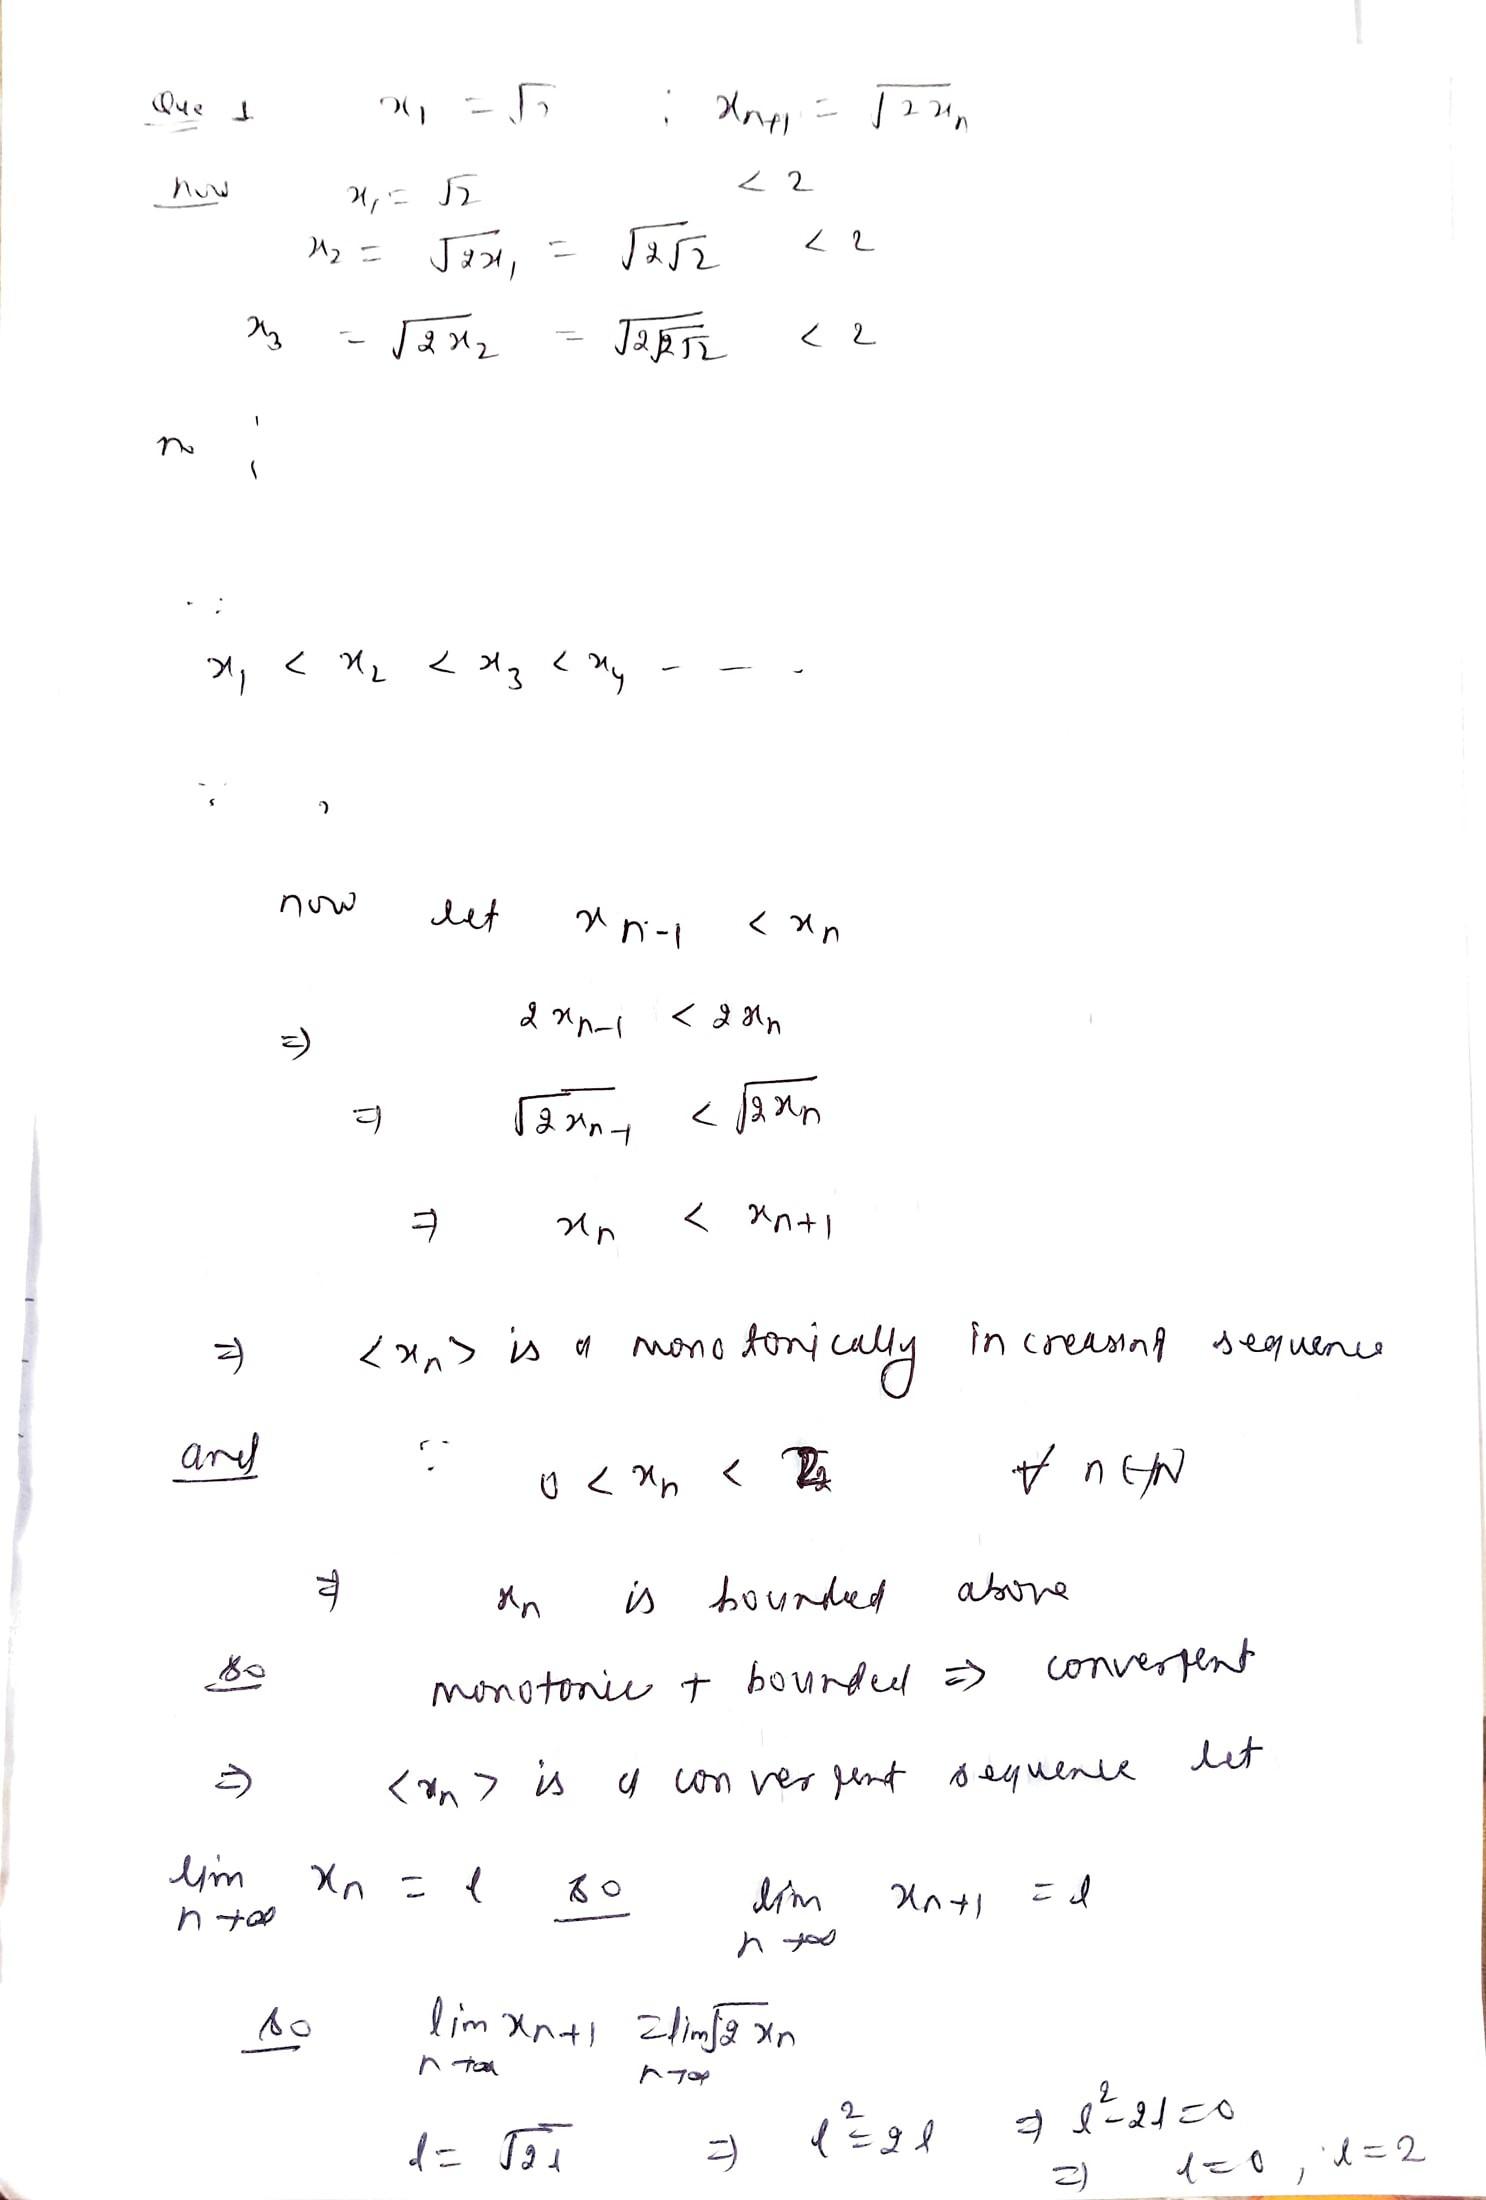 Que 1 x₁ = √2 ; xₙ₊₁ = √2xₙ
now x₁ = √2 < 2
x₂ = √2x₁ = √2√2 < 2
x₃ = √2x₂ = √2√2√2 < 2
⋮
∵
x₁ < x₂ < x₃ < x₄ - - -
∵ ,
now let xₙ₋₁ < xₙ
⇒ 2xₙ₋₁ < 2xₙ
⇒ √2xₙ₋₁ < √2xₙ
⇒ xₙ < xₙ₊₁
⇒ <xₙ> is a monotonically increasing sequence
and ∵ 0 < xₙ < 2 ∀ n ∈ N
⇒ xₙ is bounded above
so monotonic + bounded ⇒ convergent
⇒ <xₙ> is a convergent sequence let
lim n→∞ xₙ = l so lim n→∞ xₙ₊₁ = l
so lim n→∞ xₙ₊₁ = lim n→∞ √2xₙ
l = √2l ⇒ l² = 2l ⇒ l² - 2l = 0
⇒ l = 0 , l = 2